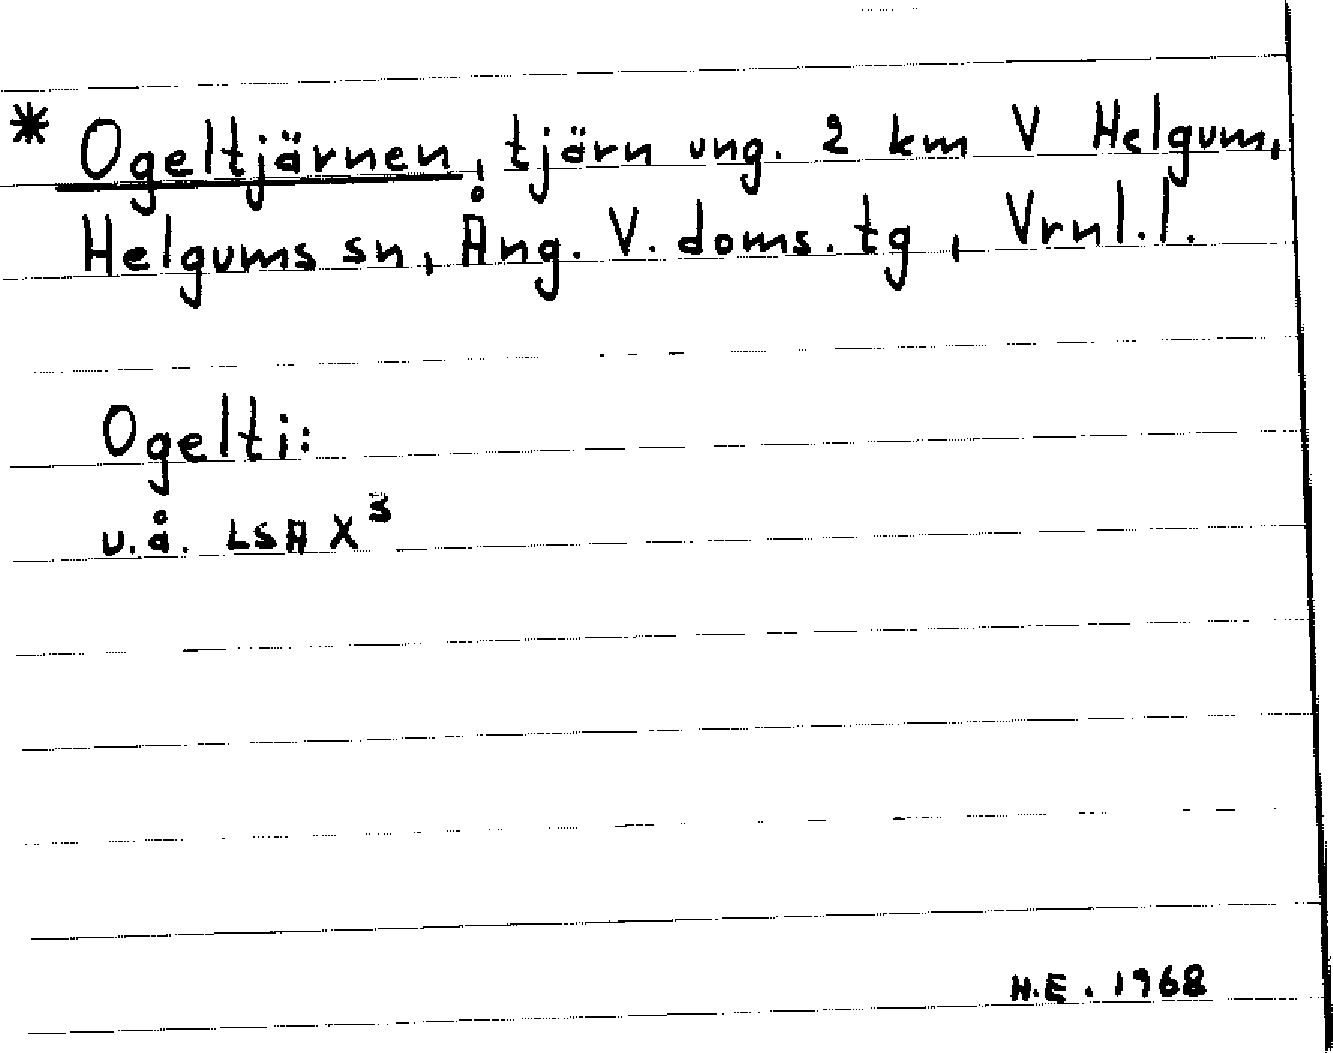 * Ogeltjärnen, tjärn ung. 2 km V Helgum,
Helgums sn, Ång. V. doms. tg, Vrnl. l.
Ogelti:
u.å. LSA X³
H.E. 1968